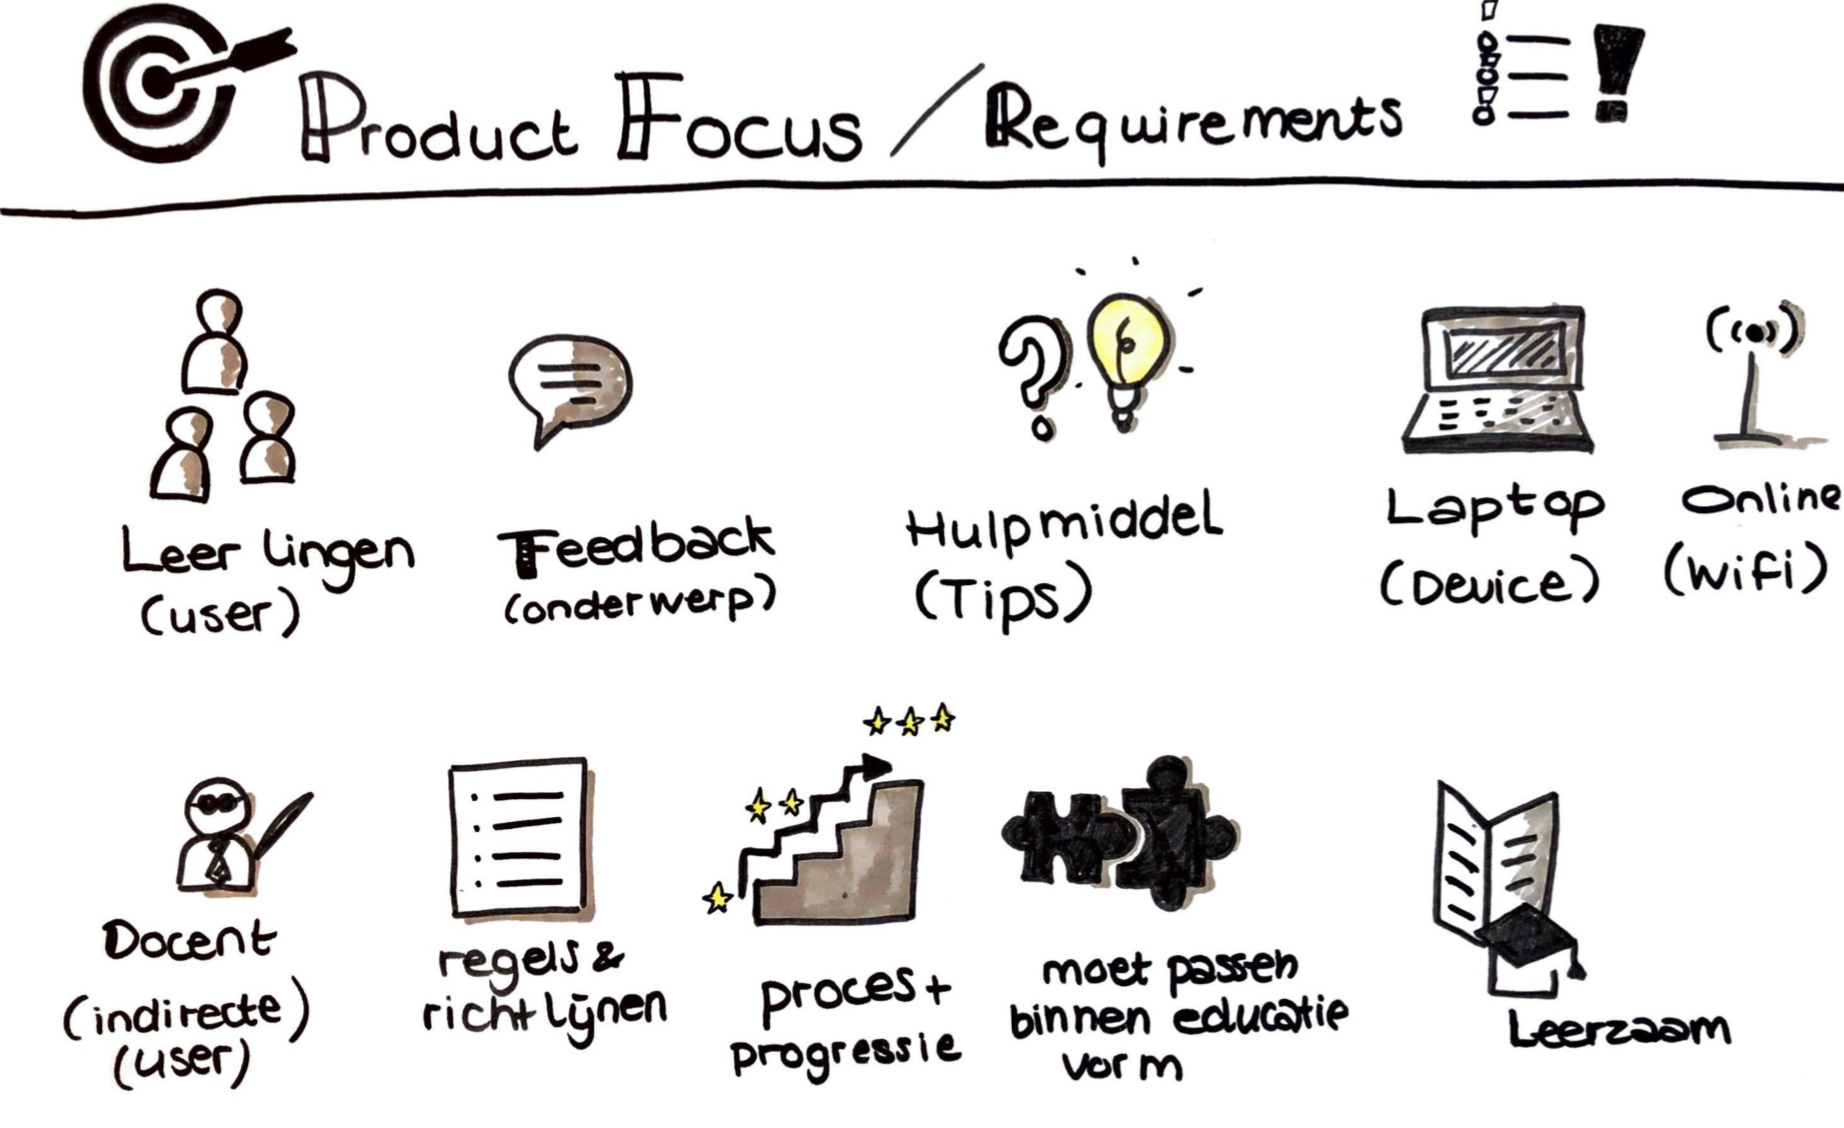 Product Focus / Requirements
Leerlingen
(user)
Feedback
(onderwerp)
Hulpmiddel
(Tips)
Laptop
(Device)
Online
(Wifi)
Docent
(indirecte)
(user)
regels &
richtlijnen
proces +
progressie
moet passen
binnen educatie
vorm
Leerzaam